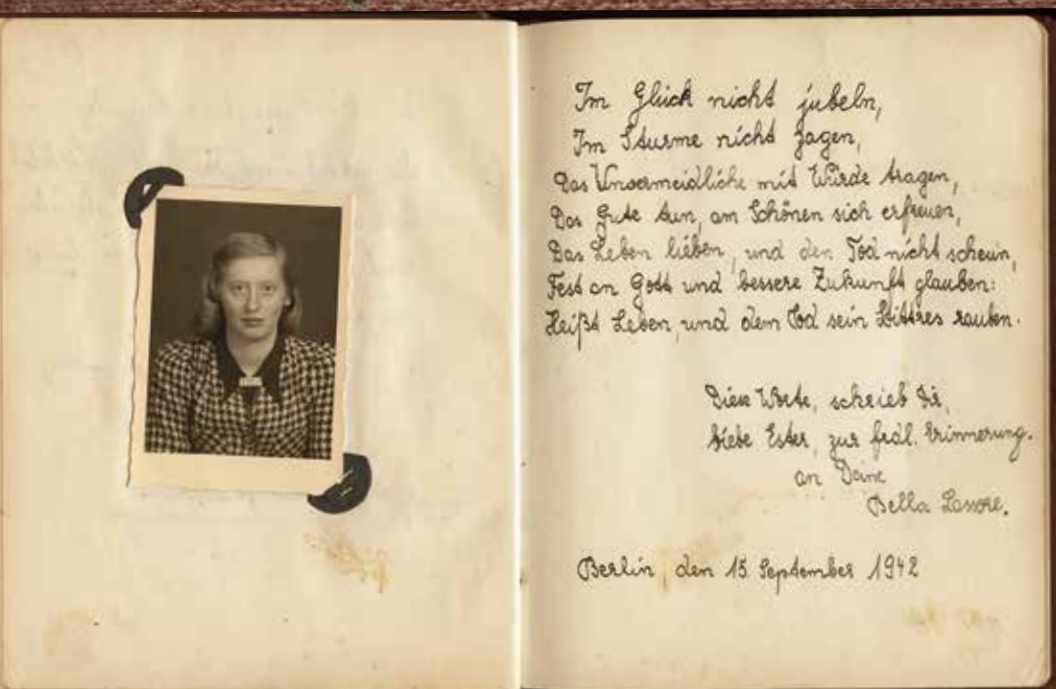 Im Glück nicht jubeln,
Im Sturme nicht zagen,
Das Unvermeidliche mit Würde tragen,
Das Gute tun, am Schönen sich erfreuen,
Das Leben lieben, und den Tod nicht scheun,
Fest an Gott und bessere Zukunft glauben:
Heißt Leben, und dem Tod sein Bittres rauben.
Diese Worte, schrieb Dir,
liebe Ester, zur frdl. Erinnerung.
an Deine
Bella
Berlin, den 15. September 1942